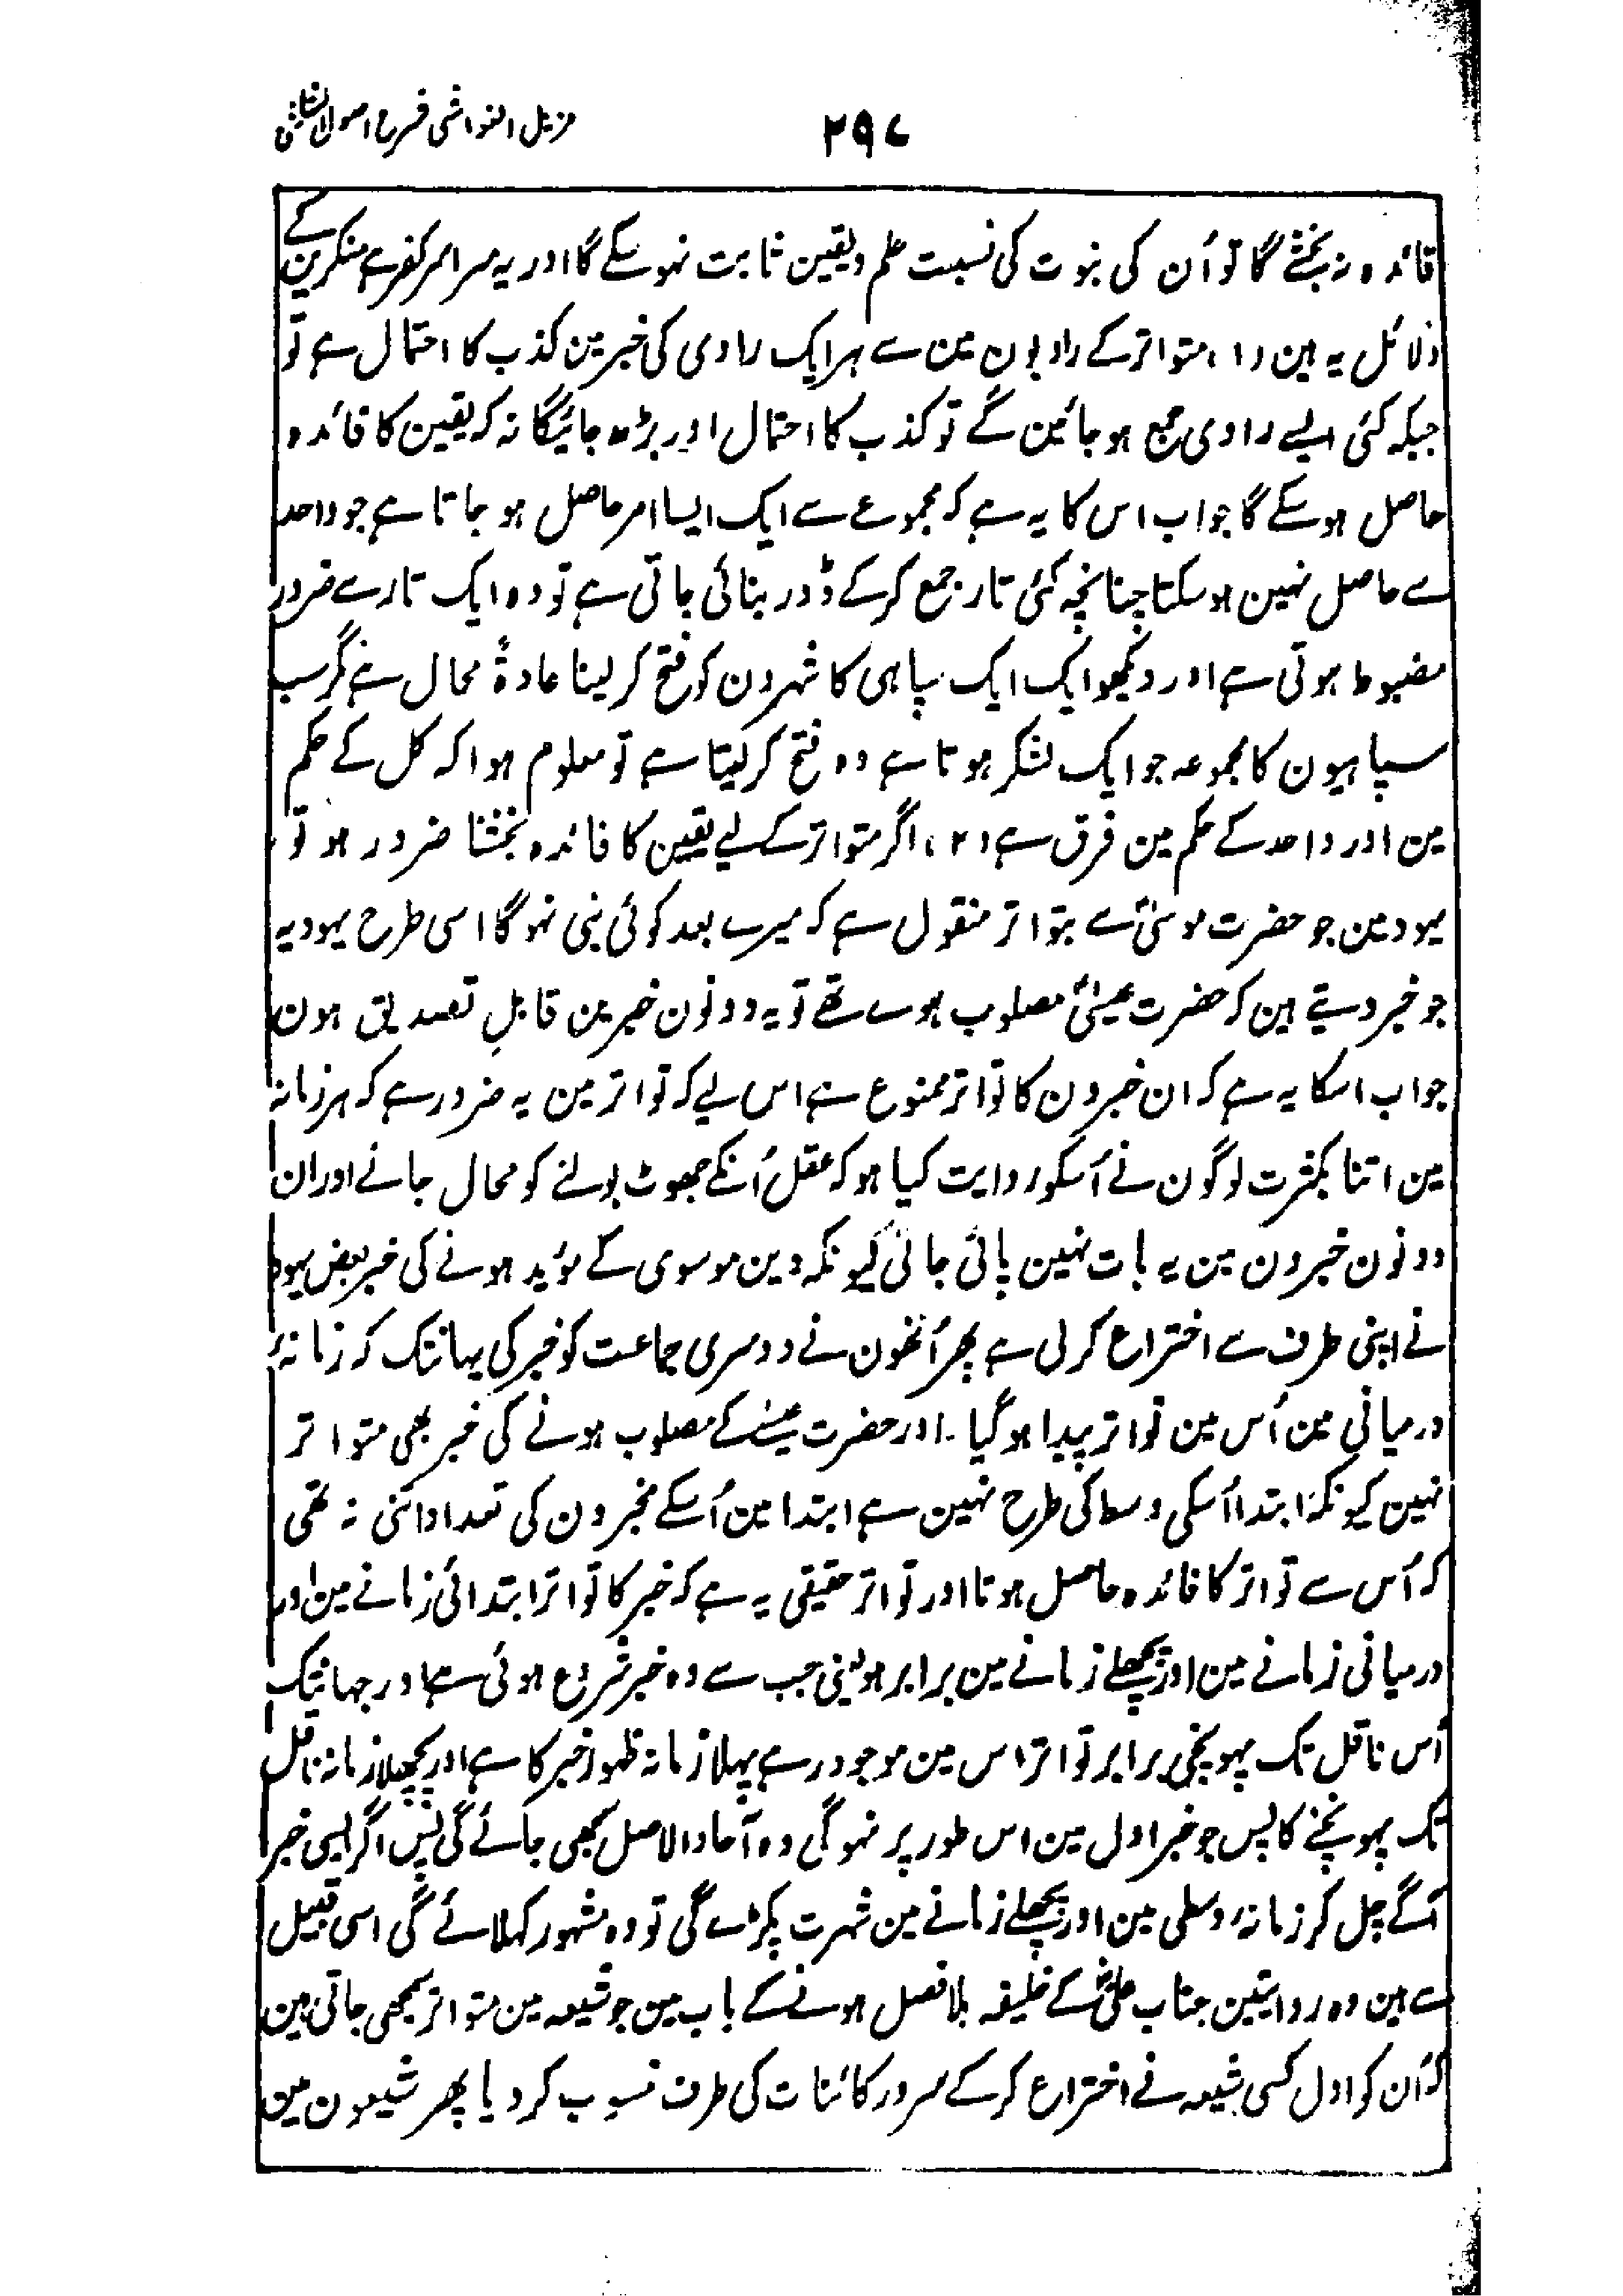 ۲۹۷
مزیل الغواشی شرح اصول الشاشی
فائدہ نہ بخشے گا تو اُن کی نبوت کی نسبت علم و یقین ثابت نہو سکے گا اور یہ سراسر کفر ہے منکرین کے
دلائل یہ ہین (۱) متواتر کے راویون مین سے ہر ایک راوی کی خبر مین کذب کا احتمال ہے تو
جبکہ کئی ایسے راوی جمع ہو جائین گے تو کذب کا احتمال اور بڑھ جائیگا نہ کہ یقین کا فائدہ
حاصل ہو سکے گا جواب اس کا یہ ہے کہ مجموع سے ایک ایسا امر حاصل ہو جاتا ہے جو واحد
سے حاصل نہین ہو سکتا چنانچہ کئی تار جمع کر کے ڈور بنائی جاتی ہے تو وہ ایک تار سے ضرور
مضبوط ہوتی ہے اور دیکھو ایک ایک سپاہی کا شہرون کو فتح کر لینا عادۃً محال ہے مگر سب
سپاہیون کا مجموعہ جو ایک لشکر ہوتا ہے وہ فتح کر لیتا ہے تو معلوم ہوا کہ کل کے حکم
مین اور واحد کے حکم مین فرق ہے (۲) اگر متواتر کے لیے یقین کا فائدہ بخشنا ضرور ہو تو
یہود مین جو حضرت موسیٰؑ سے بتواتر منقول ہے کہ میرے بعد کوئی نبی نہو گا اسی طرح یہود یہ
جو خبر دیتے ہین کہ حضرت عیسیٰؑ مصلوب ہوے تھے تو یہ دونون خبرین قابلِ تصدیق ہون
جواب اسکا یہ ہے کہ ان خبرون کا تواتر ممنوع ہے اس لیے کہ تواتر مین یہ ضرور ہے کہ ہر زمانہ
مین اتنا بکثرت لوگون نے اُسکو روایت کیا ہو کہ عقل اُنکے جھوٹ بولنے کو محال جانے اور ان
دونون خبرون مین یہ بات نہین پائی جاتی کیونکہ دین موسوی کے مؤید ہونے کی خبر بعض یہود
نے اپنی طرف سے اختراع کر لی ہے پھر اُنھون نے دوسری جماعت کو خبر کی یہانتک کہ زمانۂ
درمیانی مین اُس مین تواتر پیدا ہو گیا۔ اور حضرت عیسےٰ کے مصلوب ہونے کی خبر بھی متواتر
نہین کیونکہ ابتدا اُسکی وسط کی طرح نہین ہے ابتدا مین اُسکے مخبرون کی تعداد اتنی نہ تھی
کہ اُس سے تواتر کا فائدہ حاصل ہوتا اور تواتر حقیقی یہ ہے کہ خبر کا تواتر ابتدائی زمانے مین اور
درمیانی زمانے مین اور پچھلے زمانے مین برابر ہو یعنی جب سے وہ خبر شروع ہوئی ہے اور جہانتک
اُس ناقل تک پہونچی برابر تواتر اس مین موجود رہے پہلا زمانہ ظہور خبر کا ہے اور پچھلا زمانہ ناقل
تک پہونچنے کا پس جو خبر اول مین اس طور پر نہو گی وہ آحاد الاصل سمجھی جائے گی پس اگر ایسی خبر
آگے چل کر زمانۂ وسطی مین اور پچھلے زمانے مین شہرت پکڑے گی تو وہ مشہور کہلائے گی اسی قبیل
سے ہین وہ روایتین جناب علیؓ کے خلیفہ بلا فصل ہونے کے باب مین جو شیعہ مین متواتر سمجھی جاتی ہین
کہ اُن کو اول کسی شیعہ نے اختراع کر کے سرور کائنات کی طرف منسوب کر دیا پھر شیعون مین